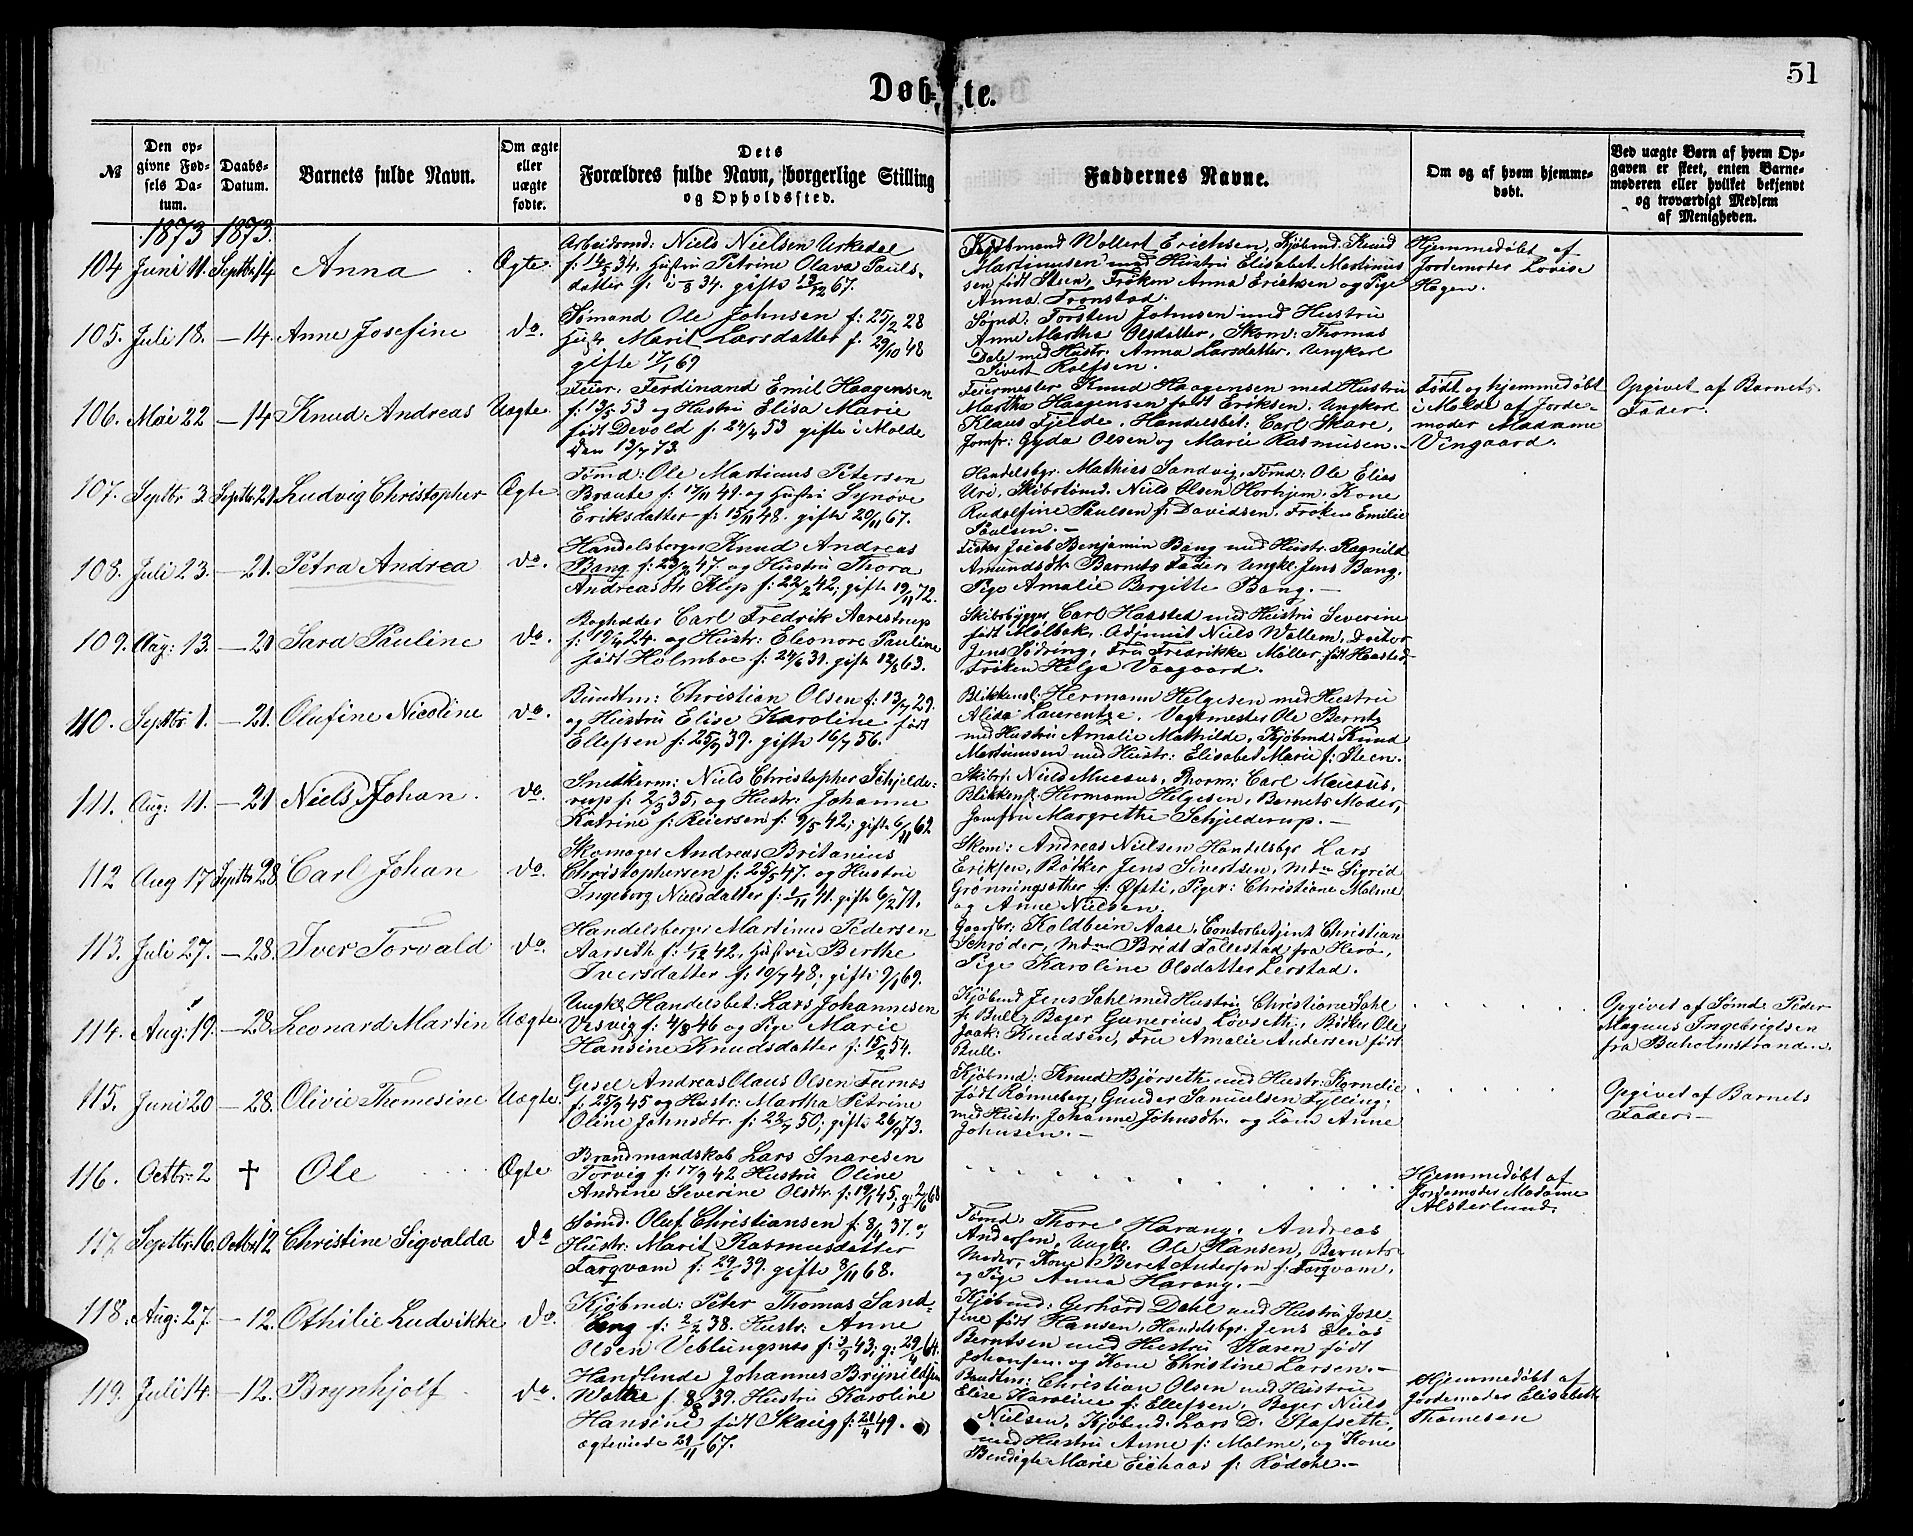 51
Døb- te.
№
Den op-
givne Fød-
sels Da-
tum.
Daabs-
Datum.
Barnets fulde Navn.
Om ægte
eller
uægte
fødte.
Dets
Forældres fulde Navn, borgerlige Stilling
og Opholdssted.
Faddernes Navne.
Om og af hvem hjemme-
døbt.
Ved uægte Børn af hvem Op-
gaven er skeet, enten Barne-
moderen eller hvilket bekjendt
og troværdigt Medlem
af Menigheden.
1873 1873.
104 Juni 11. Septbr 14 Anna Ægte
Arbeidsmd: Niels Nielsen Urkedal
f: 14/5 34. Hustru Petrine Olava Pauls-
datter
gifte 67.
Kjøbmand Wollert Erichsen, Kjøbmd. Knud
Martinusen med Hustru Elisabet Martinus
sen født Steen, Frøken Anna Erichsen og Pige
Anna Tronstad.
Hjemmedøbt af
Jordemoder Lovise
Hagen.
105. Juli 18. — 14. Anne Josefine do.
Sømand Ole Johnsen f: 25/2 28
Hust: Marit Larsdatter f. 29/10 48
gifte 69
Sømd: Torsten Johnsen med Hustru
Anne Martha Olsdatter, Skom: Thomas
Dale med Hustr. Anna Larsdatter. Ungkarl
Sivert Rolfsen.
106. Mai 22 — 14 Knud Andreas Uægte
Feier. Ferdinand Emil Haagensen
f: 13/5 53 og Hustru Elisa Marie
født Devold f. 24/4 53 gifte i Molde
den 13/7 73.
Feiermester Knud Haagensen med Hustru
Martha Haagensen født Eriksen. Ungkarl
Klaus Fjelde, Handelsbet: Carl Skare,
Jomfr: Gyda Olsen og Marie Rasmusen.
Født og hjemmedøbt
i Molde af Jorde-
moder Madame
Vingaard.
Opgivet af Barnets
Fader.
107. Septbr 3. Septbr. 21. Ludvig Christopher Ægte
Tømd: Ole Martinus Peterson
Braute f: 17/11 41. og Hustru Synøve
Eriksdatter f: 15/11 48. gifte 20/11 67.
Handelsbgr. Mathias Sandvig, Tømd: Ole Elias
Uri, Skibstømd. Niels Olsen Horhjem. Kone
Rudolfine Paulsen f: Davidsen. Frøken Emilie
Paulsen.
108. Juli 23. — 21. Petra Andrea do.
Handelsborger Knud Andreas
Bang f: 23/9 47. og Hustru Thora
Andreasdtr Alep f: 22/2 42; gifte 19/11 72.
Fisker Jacob Benjamin Bang med Hustr. Ragnild
Amundsdtr Barnets Fader Ungk: Jens Bang,
Pige Amalie Bergitte Bang.
109. Aug: 13. — 21 Sara Pauline do.
Bogholder Carl Fredrik Aarestrup
f: 19/4 24. og Hustr: Eleonore Pauline
født Holmboe f: 24/6 39. gifte 12/8 63.
Skibsbygger Carl Haasted med Hustru Severine
født Mølbak. Adjunct Niels Wollem, Doctor
Jens Sødring, Fru Fredrikke Møller født Haasted
Frøken Helga Vaagaard.
110. Septbr 1. — 21. Olufine Nicoline do.
Bundtm: Christian Olsen f: 13/7 29.
og Hustru Elise Karoline født
Ellefsen f: 25/9 39. gifte 16/7 56.
Blikkensl: Hermann Helgesen med Hustru
Alida Laurentze. Vagtmester Ole Berntz
med Hustru Amalie Mathilde, Kjøbmd: Knud
Martinusen med Hustr: Elisabet Marie f: Steen.
111. Aug: 11. — 21 Niels Johan. do.
Snedkerm: Niels Christopher Schjelde-
rup f: 2/3 35, og Hustr: Johanne
Katrine f: Reiersen f: 9/5 42; gifte 6/11 62
Skibsr: Niels Mueeus, Carl Mueeus,
Blikkensl: Hermann Helgesen, Barnets Moder,
Jomfru Margrethe Schjelderup.
112 Aug 17 Septbr 28 Carl Johan do.
Skomager Andreas Britanius
Christophersen f: 25/5 47. og Hustru
Ingeborg Nielsdatter f: 1/11 41. gifte 6/2 71.
Skom: Andreas Nielsen Handelsbgr Lars
Eriksen, Bøtker Jens Sivertsen, Mdm Sigrid
Grønningsæther f: Øfsti, Piger: Christiane Malme
og Anne Nielsen.
113. Juli 27. — 28. Iver Torvald do.
Handelsborger Martinus Pedersen
Aarseth f: 42. Hustru Berthe
Iversdatter f: 19/7 48; gifte 9/1 69.
Gaardbr: Koldbein Aase, Contorbetjent Christian
Schrøder, Mdm Bridt Tollestad fra Herø,
Pige Karoline Olsdatter Lerstad.
114. Aug: 19. — 28. Leonard Martin Uægte
Ungkl Handelsbet: Lars Johannesen
Vesvig f: 4/8 46 og Pige Marie
Hansine Knudsdatter f: 15/2 54.
Kjøbmd Jens Sahl med Hustru Christiane Sahl
f: Bull, Bager Gunerius Løvseth, Ole
Jaak: Knudsen, Fru Amalie Andersen født
Bull.
Opgivet af Sømd: Peder
Magnus Ingebrigtsen
fra Baholmstranden.
115. Juni 20 — 28. Olivie Thomesine Uægte
Gesel Andreas Olaus Olsen Furnæs
f: 25/9 45 og Hustr: Martha Petrine
Oline Johnsdtr. f: 22/7 50; gifte 26/9 73.
Kjøbmd: Knud Bjørseth med Hustr: Kornelie
født Rønneberg, Gunder Samuelsen Fylling
med Hustr: Johanne Johnsdtr. og Anne
Johnsen.
Opgivet af Barnets
Fader:
116. Octbr: 2 † Ole Ægte
Brandmandskab Lars Snaresen
Torvig f: 17/9 42 Hustru Oline
Andrine Severine Olsdtr. f: 19/1 45; g: 68
Hjemmedøbt af
Jordemoder Madame
Alsterlund.
117. Septbr. 16. Octbr. 12 Christine Sigvalda do
Sømd. Oluf Christiansen f: 8/4 37. og
Hustr: Marit Rasmusdatter
Farqvam f: 29/6 39. gifte 8/11 68.
Tømd. Thore Harang. Andreas
Andersen, Ungkl. Ole Hansen, Barnets
Moder, Kone Beret Andersen f: Farqvam,
og Pige Anna Harang.
118. Aug: 27. — 12. Othilie Ludvikke do.
Kjøbmd: Peter Thomas Sand-
berg f: 2/2 38. Hustr: Anne
Olsen Veblungsnæs f: 43; g: 29/4 64.
Kjøbmd: Gerhard Dahl med Hustru Jose-
fine født Hansen, Handelsbgr. Jens Elias
Berntsen med Hustru Karen født
Johansen. og Kone Christine Larsen.
119. Juli 14. — 12. Brynhjolf do.
Handlende Johannes Brynildsen
Welle f: 8/8 39. Hustru Karoline
Hansine født Skaug f: 20/4 49.
ægteviede 29/11 67.
Bundtm: Christian Olsen med Hustru
Elise Karoline f: Ellefsen, Bager Niels
Nielsen, Kjøbmd. Lars D. Stafseth
med Hustru Anne f: Malme, og Kone
Bendigte Marie Eeihaas f: Rødahl.
Hjemmedøbt af
Jordemoder Elisabeth
Thomesen